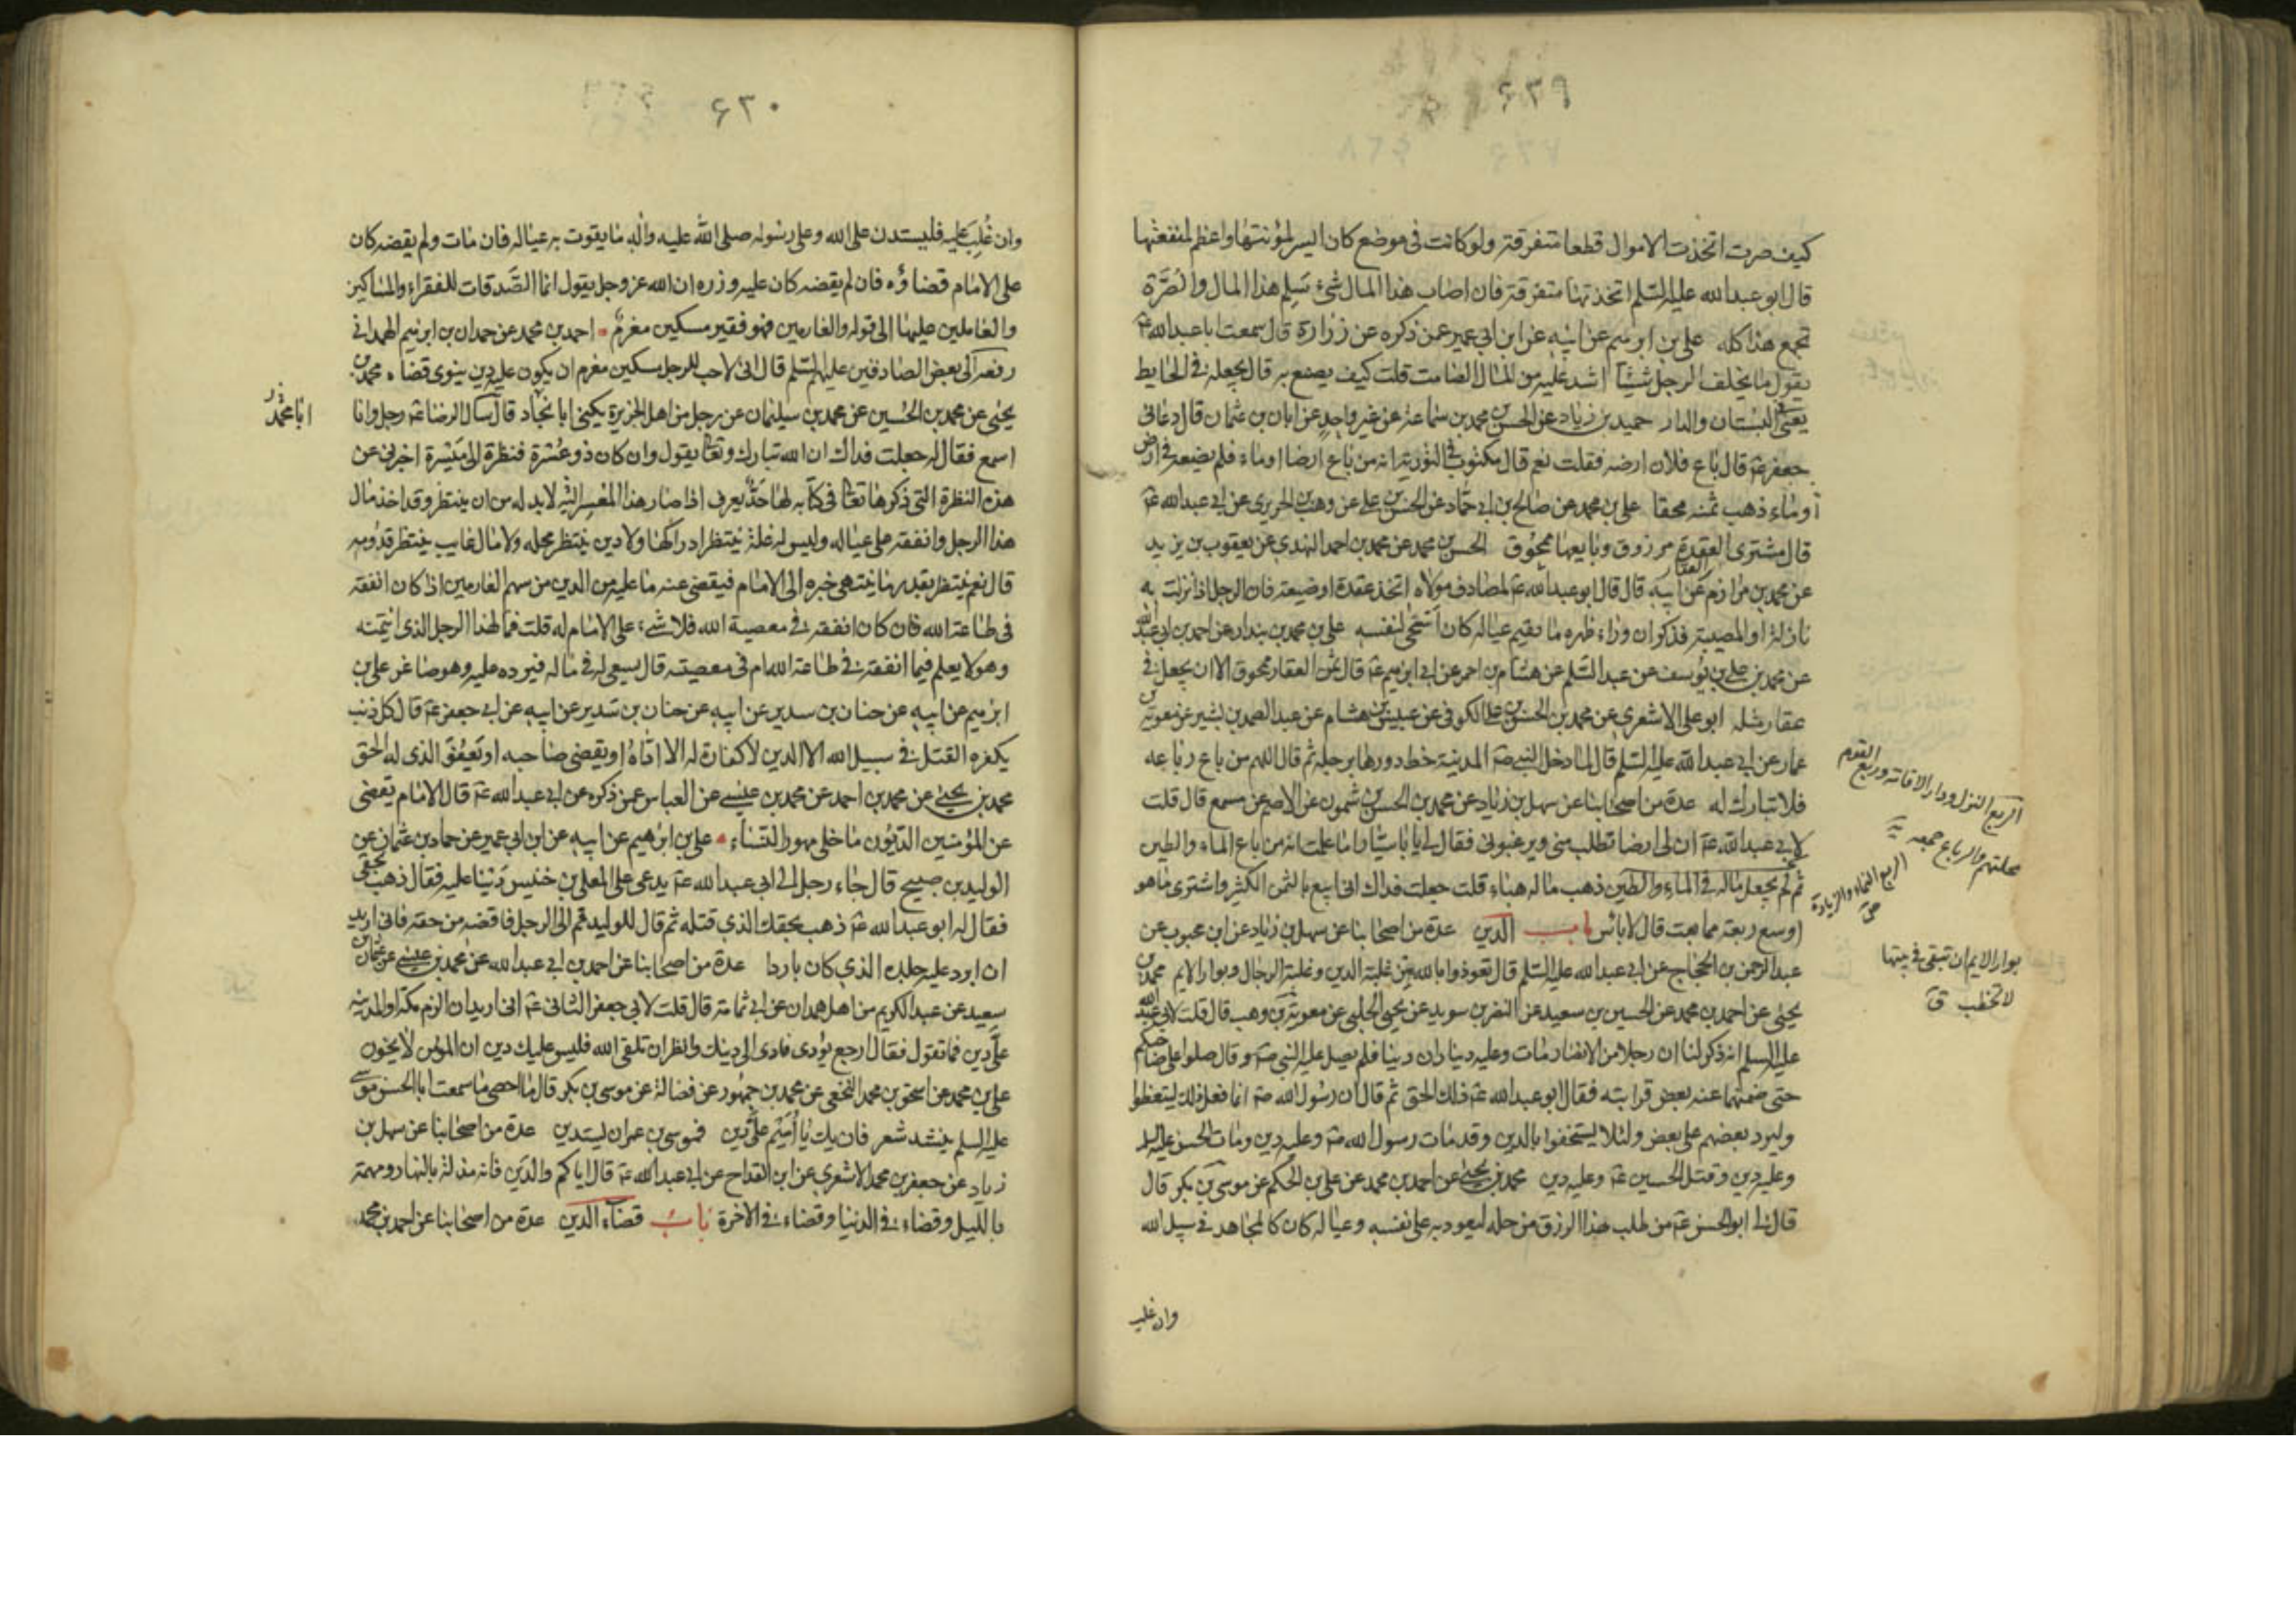 ٤٢٩
كيف صرت اتخذت الاموال قطعا متفرقة ولو كانت فى موضع كان ايسر لمؤنتها واعظم لمنفعتها
قال ابو عبد الله عليه السلم اتخذتها متفرقة فان اصاب هذا المال شئ سلم هذا المال والصرة
تجمع هذا كله على بن ابرهيم عن ابيه عن ابن ابى عمير عمن ذكره عن زرارة قال سمعت ابا عبد الله ع
يقول ما يخلف الرجل شيئا اشد عليه من المال الصامت قلت كيف يصنع به قال يجعله فى الحايط
يعنى فى البستان والدار حميد بن زياد عن الحسن بن محمد بن سماعة عن غير واحد عن ابان بن عثمان قال دعانى
جعفر ع قال باع فلان ارضه فقلت نعم قال مكتوب فى التورية انه من باع ارضا او ماء فلم يضعه فى ارض
او ماء ذهب ثمنه محقا على بن محمد عن صالح بن ابى حماد عن الحسن بن على عن وهب الحريرى عن ابى عبد الله ع
قال مشترى العقدة مرزوق وبايعها ممحوق الحسن بن محمد عن محمد بن احمد النهدى عن يعقوب بن يزيد
عن محمد بن مرازم عن ابيه قال قال ابو عبد الله ع لمصادف مولاه اتخذ عقدة او ضيعة فان الرجل اذا نزلت به
نازلة او المصيبة فذكر ان وراء ظهره ما يقيم عياله كان اسخى لنفسه على بن محمد بن بندار عن احمد بن ابى عبد الله
عن محمد بن على بن يوسف عن عبد السلم عن هشام بن احمر عن ابى ابرهيم ع قال ثمن العقار ممحوق الا ان يجعل فى
عقار مثله ابو على الاشعرى عن محمد بن الحسن بن على الكوفى عن عبيس بن هشام عن عبد الصمد بن بشير عن معوية بن
عمار عن ابى عبد الله عليه السلم قال لما دخل النبى ص المدينة خط دورها برجله ثم قال اللهم من باع رباعه
فلا تبارك له عدة من اصحابنا عن سهل بن زياد عن محمد بن الحسن بن شمون عن الاصم عن مسمع قال قلت
لابى عبد الله ع ان لى ارضا تطلب منى ويرغبونى فقال لى يا ابا سيار اما علمت انه من باع الماء والطين
ثم لم يجعل ماله فى الماء والطين ذهب ماله هباء قلت جعلت فداك انى ابيع بالثمن الكثير واشترى ما هو
اوسع ربعة مما بعت قال لا باس باب الدين عدة من اصحابنا عن سهل بن زياد عن ابن محبوب عن
عبد الرحمن بن الحجاج عن ابى عبد الله عليه السلم قال تعوذوا بالله من غلبة الدين وغلبة الرجال وبوار الايم محمد بن
يحيى عن احمد بن محمد عن الحسين بن سعيد عن النضر بن سويد عن يحيى الحلبى عن معوية بن وهب قال قلت لابى عبد الله
عليه السلم انه ذكر لنا ان رجلا من الانصار مات وعليه ديناران دينا فلم يصل عليه النبى ص وقال صلوا على صاحبكم
حتى ضمنهما عنه بعض قرابته فقال ابو عبد الله ع ذلك الحق ثم قال ان رسول الله ص انما فعل ذلك ليتعظوا
وليرد بعضهم على بعض ولئلا يستخفوا بالدين وقد مات رسول الله ص وعليه دين ومات الحسن عليه السلم
وعليه دين وقتل الحسين ع وعليه دين محمد بن يحيى عن احمد بن محمد عن على بن الحكم عن موسى بن بكر قال
قال لى ابو الحسن ع من طلب هذا الرزق من حله ليعود به على نفسه وعياله كان كالمجاهد فى سبيل الله
وان غلب
الربع المنزل ودار الاقامة وربع القوم
محلتهم والرباع جمعه
الريع النماء والزيادة
بوار الايم ان تبقى فى بيتها
لا تخطب ق
٤٣٠
وان غلب عليه فليستدن على الله وعلى رسوله صلى الله عليه واله ما يقوت به عياله فان مات ولم يقضه كان
على الامام قضاؤه فان لم يقضه كان عليه وزره ان الله عز وجل يقول انما الصدقات للفقراء والمساكين
والعاملين عليها الى قوله والغارمين فهو فقير مسكين مغرم احمد بن محمد عن حمدان بن ابرهيم الهمدانى
رفعه الى بعض الصادقين عليهم السلم قال انى لاحب للرجل مسكين مغرم ان يكون عليه دين ينوى قضاه محمد بن
يحيى عن محمد بن الحسين عن محمد بن سليمان عن رجل من اهل الجزيرة يكنى ابا نجاد قال سال الرضا ع رجل وانا
اسمع فقال له جعلت فداك ان الله تبارك وتعالى يقول وان كان ذو عسرة فنظرة الى ميسرة اخبرنى عن
هذه النظرة التى ذكرها تعالى فى كتابه لها حد يعرف اذا صار هذا المعسر اليه لابد له من ان ينتظر وقد اخذ مال
هذا الرجل وانفقه على عياله وليس له غلة ينتظر ادراكها ولا دين ينتظر محله ولا مال غايب ينتظر قدومه
قال نعم ينتظر بقدر ما ينتهى خبره الى الامام فيقضى عنه ما عليه من الدين من سهم الغارمين اذا كان انفقه
فى طاعة الله فان كان انفقه فى معصية الله فلا شىء على الامام له قلت فما لهذا الرجل الذى ائتمنه
وهو لا يعلم فيما انفقه فى طاعة الله ام فى معصيته قال يسعى له فى ماله فيرده عليه وهو صاغر على بن
ابرهيم عن ابيه عن حنان بن سدير عن ابيه عن حنان بن سدير عن ابيه عن ابى جعفر ع قال كل ذنب
يكفره القتل فى سبيل الله الا الدين لا كفارة له الا اداؤه او يقضى صاحبه او يعفو الذى له الحق
محمد بن يحيى عن محمد بن احمد عن محمد بن عيسى عن العباس عمن ذكره عن ابى عبد الله ع قال الامام يقضى
عن المؤمنين الديون ما خلى مهور النساء على بن ابرهيم عن ابيه عن ابن ابى عمير عن حماد بن عثمان عن
الوليد بن صبيح قال جاء رجل الى ابى عبد الله ع يدعى على المعلى بن خنيس دينا عليه فقال ذهب بحقى
فقال له ابو عبد الله ع ذهب بحقك الذى قتله ثم قال للوليد قم الى الرجل فاقضه من حقه فانى اريد
ان ابرد عليه جلده الذى كان باردا عدة من اصحابنا عن احمد بن ابى عبد الله عن محمد بن عيسى عن عثمان بن
سعيد عن عبد الكريم من اهل همدان عن ابى ثمامة قال قلت لابى جعفر الثانى ع انى اريد ان الزم مكة او المدينة
على دين فما تقول فقال ارجع يؤدى فادى الى دينك وانظر ان تلقى الله فليس عليك دين ان المؤمن لا يخون
على بن محمد عن اسحق بن محمد النخعى عن محمد بن جمهور عن فضالة عن موسى بن بكر قال ما احصى ما سمعت ابا الحسن موسى
عليه السلم ينشد شعر فان يك يا اميم على دين فموسى بن عمران يستدين عدة من اصحابنا عن سهل بن
زياد عن جعفر بن محمد الاشعرى عن ابن القداح عن ابى عبد الله ع قال اياكم والدين فانه مذلة بالنهار ومهمة
بالليل وقضاء فى الدنيا وقضاء فى الاخرة باب قضاء الدين عدة من اصحابنا عن احمد بن محمد
ابا محمد